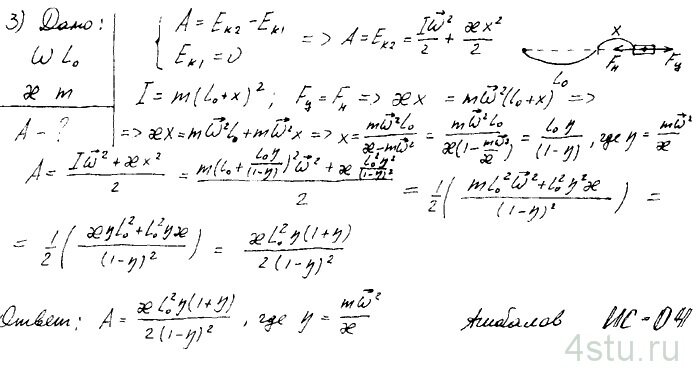 3) Дано:
ω L₀
æ m
A - ?
{ A = Eк₂ - Eк₁
Eк₁ = 0 => A = Eк₂ = Iω⃗²/2 + æx²/2
x
Fн Fц
L₀
I = m(L₀+x)²; Fц = Fн => æx = mω⃗²(L₀+x) =>
=> æx = mω⃗²L₀ + mω⃗²x => x = mω⃗²L₀/(æ-mω⃗²) = mω⃗²L₀/(æ(1-mω⃗²/æ)) = L₀η/(1-η), где η = mω⃗²/æ
A = (Iω⃗² + æx²)/2 = (m(L₀ + L₀η/(1-η))²ω⃗² + æ L₀²η²/(1-η)²)/2 = 1/2((mL₀²ω⃗² + L₀²η²æ)/(1-η)²) =
= 1/2((æηL₀² + L₀²ηæ)/(1-η)²) = æL₀²η(1+η)/(2(1-η)²)
Ответ: A = æL₀²η(1+η)/(2(1-η)²), где η = mω⃗²/æ
4stu.ru